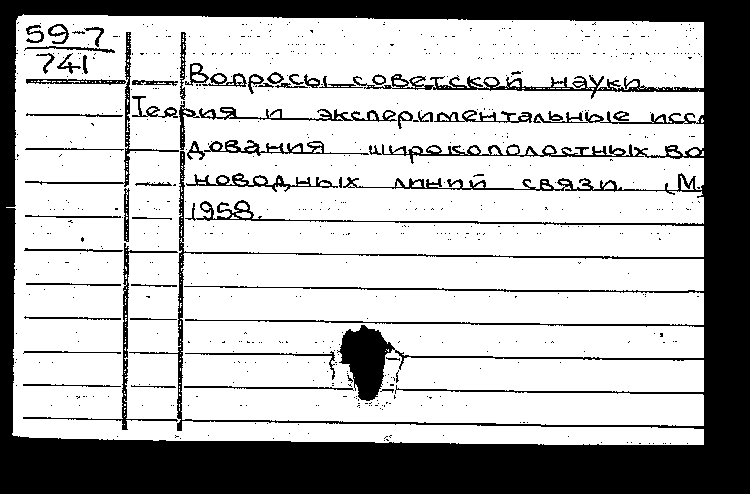 59-7
741
Вопросы советской науки
Теория и экспериментальные иссл
дования широкополостных во
новодных линий связи. М,
1958.